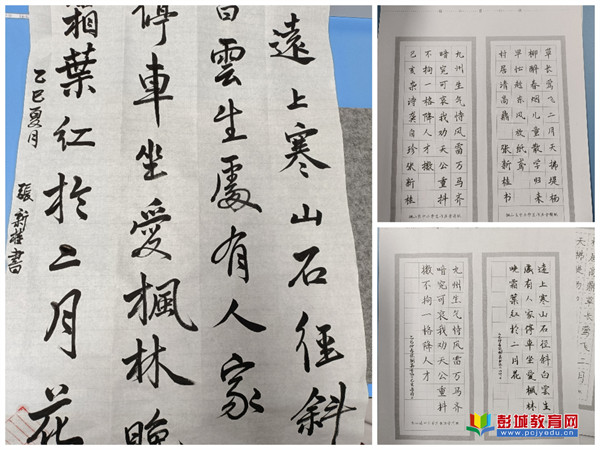 遠上寒山石徑斜
白雲生處有人家
停車坐愛楓林晚
霜葉紅於二月花
乙巳夏月
張新桂書
草长莺飞二月天拂堤杨
柳醉春烟儿童散学归来
早忙趁东风放纸鸢
村居清高鼎 张新桂书
九州生气恃风雷万马齐
喑究可哀我劝天公重抖
不拘一格降人才擞
己亥杂诗龚自珍张新桂
遠上寒山石徑斜白雲生
處有人家停車坐愛楓林
晚霜葉紅於二月花
九州生气恃风雷万马齐
喑究可哀我劝天公重抖
擞不拘一格降人才
彭城教育网
www.pcjyedu.cn